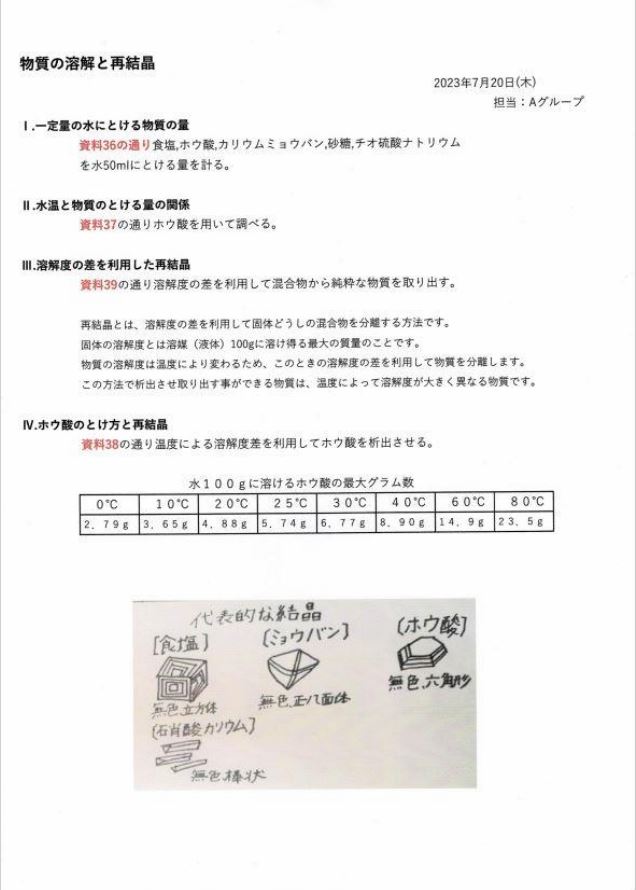 物質の溶解と再結晶
2023年7月20日(木)
担当:Aグループ
Ⅰ.一定量の水にとける物質の量
資料36の通り食塩,ホウ酸,カリウムミョウバン,砂糖,チオ硫酸ナトリウム
を水50mlにとける量を計る。
Ⅱ.水温と物質のとける量の関係
資料37の通りホウ酸を用いて調べる。
Ⅲ.溶解度の差を利用した再結晶
資料39の通り溶解度の差を利用して混合物から純粋な物質を取り出す。
再結晶とは、溶解度の差を利用して固体どうしの混合物を分離する方法です。
固体の溶解度とは溶媒(液体)100gに溶け得る最大の質量のことです。
物質の溶解度は温度により変わるため、このときの溶解度の差を利用して物質を分離します。
この方法で析出させ取り出す事ができる物質は、温度によって溶解度が大きく異なる物質です。
Ⅳ.ホウ酸のとけ方と再結晶
資料38の通り温度による溶解度差を利用してホウ酸を析出させる。
水100gに溶けるホウ酸の最大グラム数
0℃ 10℃ 20℃ 25℃ 30℃ 40℃ 60℃ 80℃
2.79g 3.65g 4.88g 5.74g 6.77g 8.90g 14.9g 23.5g
代表的な結晶
[食塩] [ミョウバン] [ホウ酸]
無色、立方体 無色、正八面体 無色、六角形
[石肖酸カリウム]
無色棒状